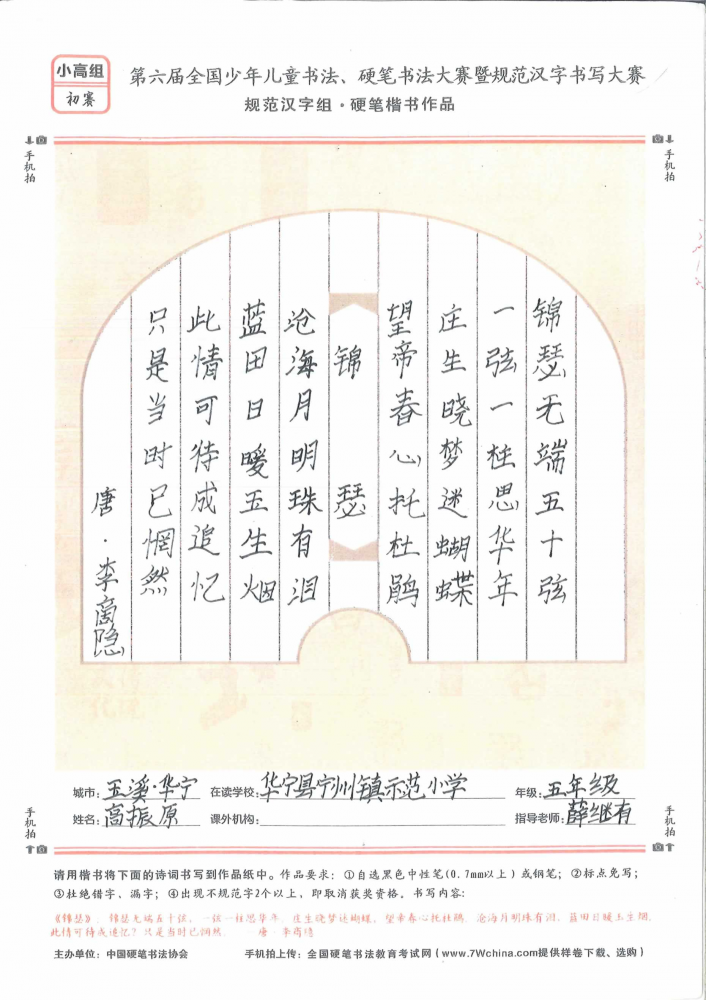 小高组
初赛
第六届全国少年儿童书法、硬笔书法大赛暨规范汉字书写大赛
规范汉字组·硬笔楷书作品
手机拍
手机拍
锦瑟无端五十弦
一弦一柱思华年
庄生晓梦迷蝴蝶
望帝春心托杜鹃
锦瑟
沧海月明珠有泪
蓝田日暖玉生烟
此情可待成追忆
只是当时已惘然
唐·李商隐
城市:玉溪·华宁 在读学校:华宁县宁州镇示范小学 年级:五年级
姓名:高振原 课外机构: 指导老师:薛继有
手机拍
手机拍
请用楷书将下面的诗词书写到作品纸中。作品要求:①自选黑色中性笔(0.7mm以上)或钢笔;②标点免写;
③杜绝错字、漏字;④出现不规范字2个以上,即取消获奖资格。书写内容:
《锦瑟》 锦瑟无端五十弦,一弦一柱思华年。庄生晓梦迷蝴蝶,望帝春心托杜鹃。沧海月明珠有泪,蓝田日暖玉生烟。
此情可待成追忆?只是当时已惘然。 唐·李商隐
主办单位:中国硬笔书法协会 手机拍上传:全国硬笔书法教育考试网(www.7Wchina.com提供样卷下载、选购)